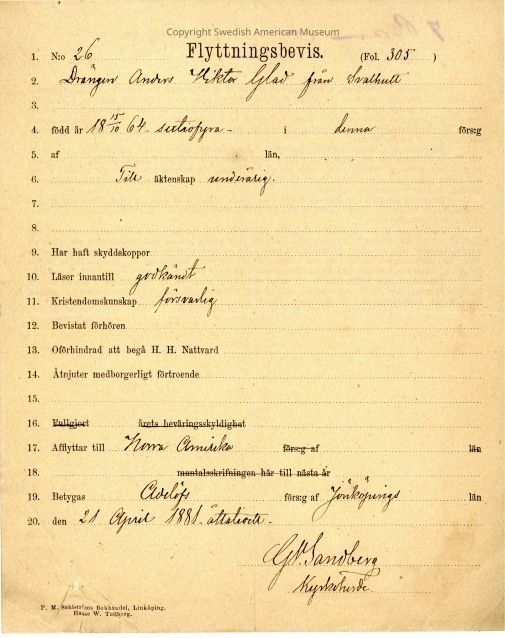 Copyright Swedish American Museum
Flyttningsbevis.
1. N:o 26 (Fol. 305 )
2. Drängen Anders Viktor Glad från Svalhult
3.
4. född år 18 15/10 64 - sextiofyra - i denna förs:g
5. af län,
6. Till äktenskap underårig.
7.
8.
9. Har haft skyddskoppor
10. Läser innantill godkändt
11. Kristendomskunskap försvarlig
12. Bevistat förhören
13. Oförhindrad att begå H. H. Nattvard
14. Åtnjuter medborgerligt förtroende
15.
16. Fullgjort årets beväringsskyldighet
17. Afflyttar till Norra Amerika förs:g af län
18. mantalsskrifningen här till nästa år
19. Betygas Adelöfs förs:g af Jönköpings län
20. den 21 April 1881 -
Sandberg
Kyrkoherde
P. M. Sahlströms Bokhandel, Linköping.
W. Tullberg.